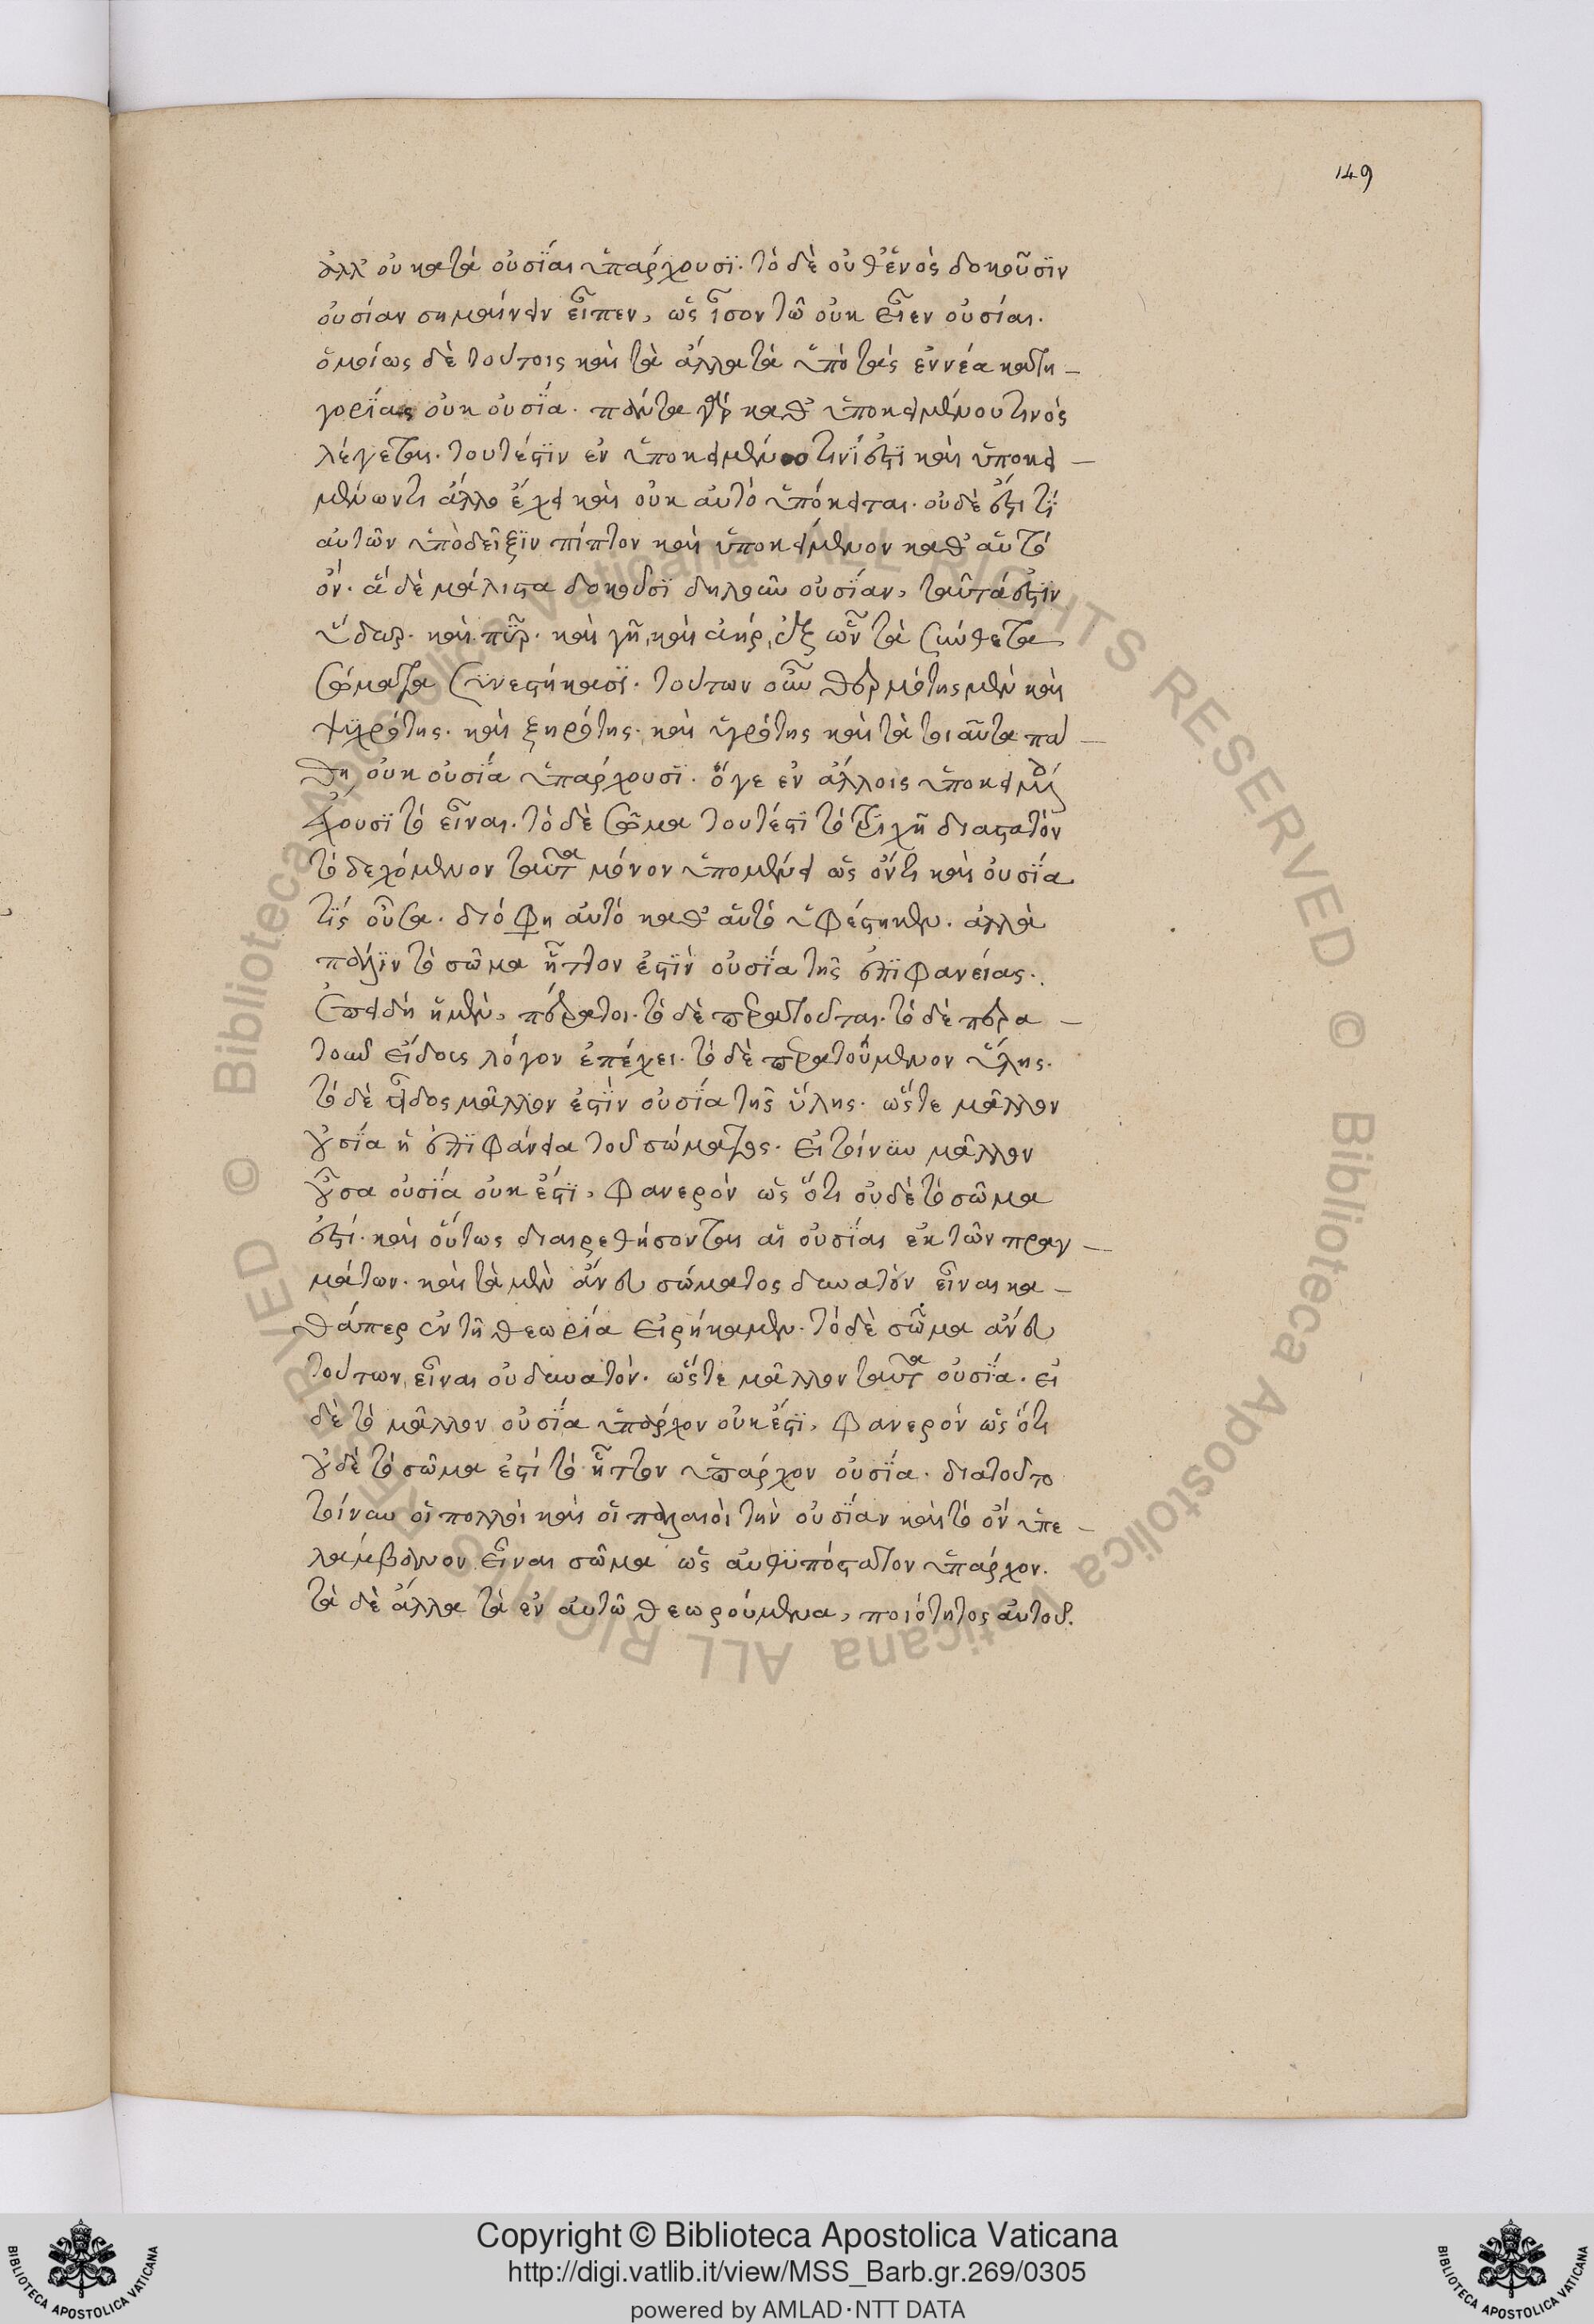 149
ἀλλ' οὐ κατὰ οὐσΐαι ὑπάρχουσϊ. τὸ δὲ οὐθἑνὸς δοκοῦσϊν
οὐσίαν σημαίνειν εἶπεν, ὡς ἶσον τῶ οὐκ εἶεν οὐσίαι.
ὁμοίως δὲ τούτοις καὶ τὰ ἄλλα τὰ ὑπὸ τὰς ἐννέα κατη-
γορΐας οὐκ οὐσΐα. πάντα γὰρ καθ' ὑποκειμένου τινὸς
λέγεται. τουτέστϊν ἐν ὑποκειμένω τινΐ ἐστϊ καὶ ὑποκει-
μένων τι ἄλλο ἔχει καὶ οὐκ αὐτὸ ὑπόκειται. οὐδὲ ἔστι τί
αὐτῶν ὑπὸ δεῖξϊν πίπτον καὶ ὑποκείμενον καθ' αὑτὸ
ὄν. ἃ δὲ μάλιστα δοκοῦσϊ δηλοῦν οὐσΐαν, ταῦτά ἐστϊν
ὕδωρ. καὶ πῦρ. καὶ γῆ, καὶ ἀήρ, ἐξ ὧν τὰ σύνθετα
σώματα συνεστήκασϊ. τούτων οὖν θερμότης μὲν καὶ
ψυχρότης. καὶ ξηρότης. καὶ ὑγρότης καὶ τὰ τοιαῦτα πά-
θη οὐκ οὐσΐα ὑπάρχουσϊ. ὅγε ἐν ἄλλοις ὑποκειμέν
ἔχουσϊ τὸ εἶναι. τὸ δὲ σῶμα τουτέστϊ τὸ τρϊχῆ διαστατὸν
τὸ δεχόμενον ταῦτα μόνον ὑπομένει ὡς ὄν τι καὶ οὐσΐα
τΐς οὖσα. διό φη αὐτὸ καθ' αὑτὸ ὑφέστηκεν. ἀλλὰ
πάλϊν τὸ σῶμα ἧττον ἐστϊν οὐσΐα τῆς ἐπϊφανείας.
ἐπειδὴ ἡ μὲν, πέρατοι. τὸ δὲ περατοῦται. τὸ δὲ πέρα-
τουν εἴδους λόγον ἐπέχει. τὸ δὲ περατούμενον ὕλης.
τὸ δὲ εἶδος μᾶλλον ἐστϊν οὐσΐα τῆς ὕλης. ὥστε μᾶλλον
οὐσΐα ἡ ἐπϊφάνεια τοῦ σώματος. εἰ τοίνυν μᾶλλον
οὖσα οὐσΐα οὐκ ἔστϊ, φανερὸν ὡς ὅτι οὐδὲ τὸ σῶμα
ἐστί. καὶ οὕτως διαιρεθήσονται αἱ οὐσΐαι ἐκ τῶν πραγ-
μάτων. καὶ τὰ μὲν ἄνευ σώματος δυνατὸν εἶναι κα-
θάπερ ἐν τῆ θεωρία εἰρήκαμεν. τὸ δὲ σῶμα ἄνευ
τούτων εἶναι οὐ δυνατόν. ὥστε μᾶλλον ταῦτα οὐσΐα. εἰ
δὲ τὸ μᾶλλον οὐσΐα ὑπάρχον οὐκ ἔστϊ, φανερὸν ὡς ὅτι
οὐδὲ τὸ σῶμα ἐστί τὸ ἧττον ὑπάρχον οὐσΐα. διατοῦτο
τοίνυν οἱ πολλοὶ καὶ οἱ παλαιοὶ τὴν οὐσΐαν καὶ τὸ ὄν ὑπε-
λάμβανον εἶναι σῶμα ὡς αὐθϋπόστατον ὑπάρχον.
τὰ δὲ ἄλλα τὰ ἐν αὐτῶ θεωρούμενα, ποιότητος αὐτοῦ.
Copyright © Biblioteca Apostolica Vaticana
http://digi.vatlib.it/view/MSS_Barb.gr.269/0305
powered by AMLAD·NTT DATA